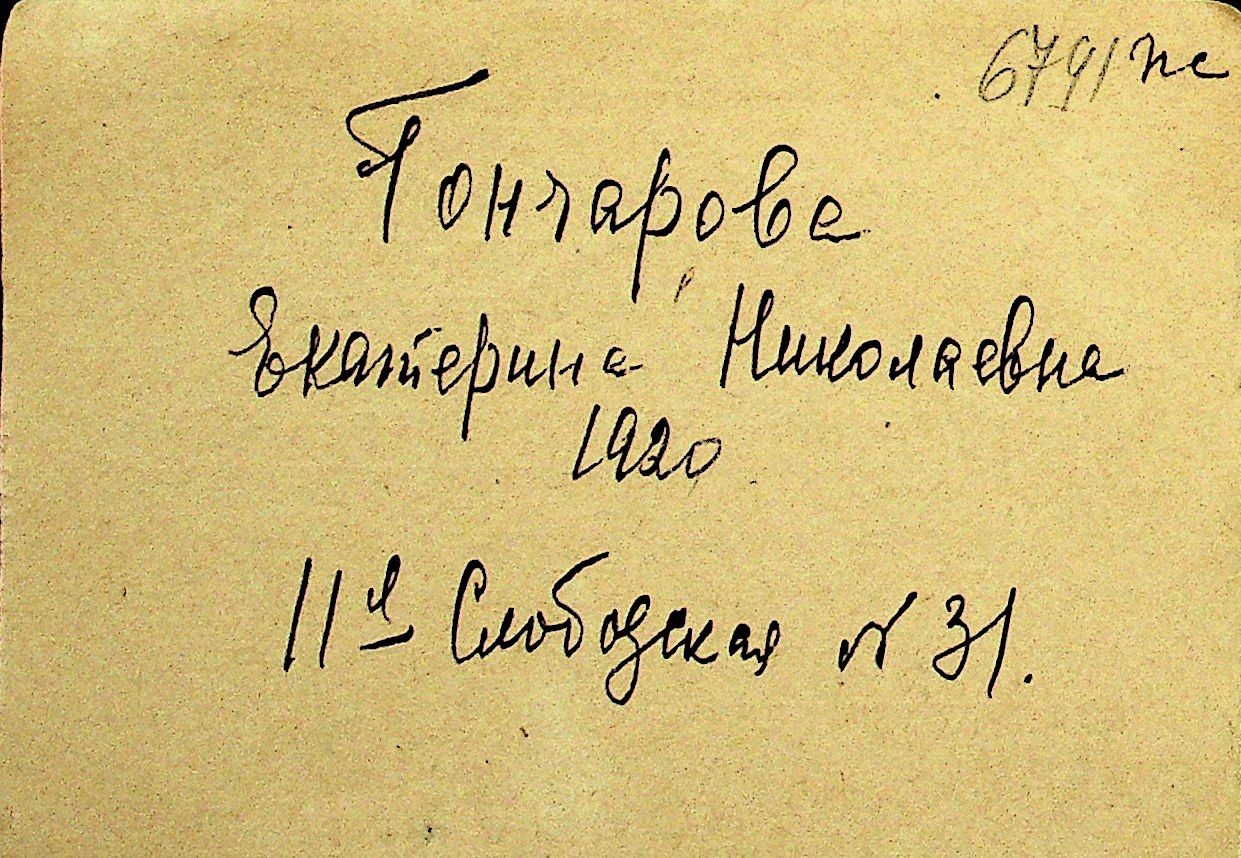 6791 пс
Гончарова
Екатерина Николаевна
1920
11я Слободская № 31.